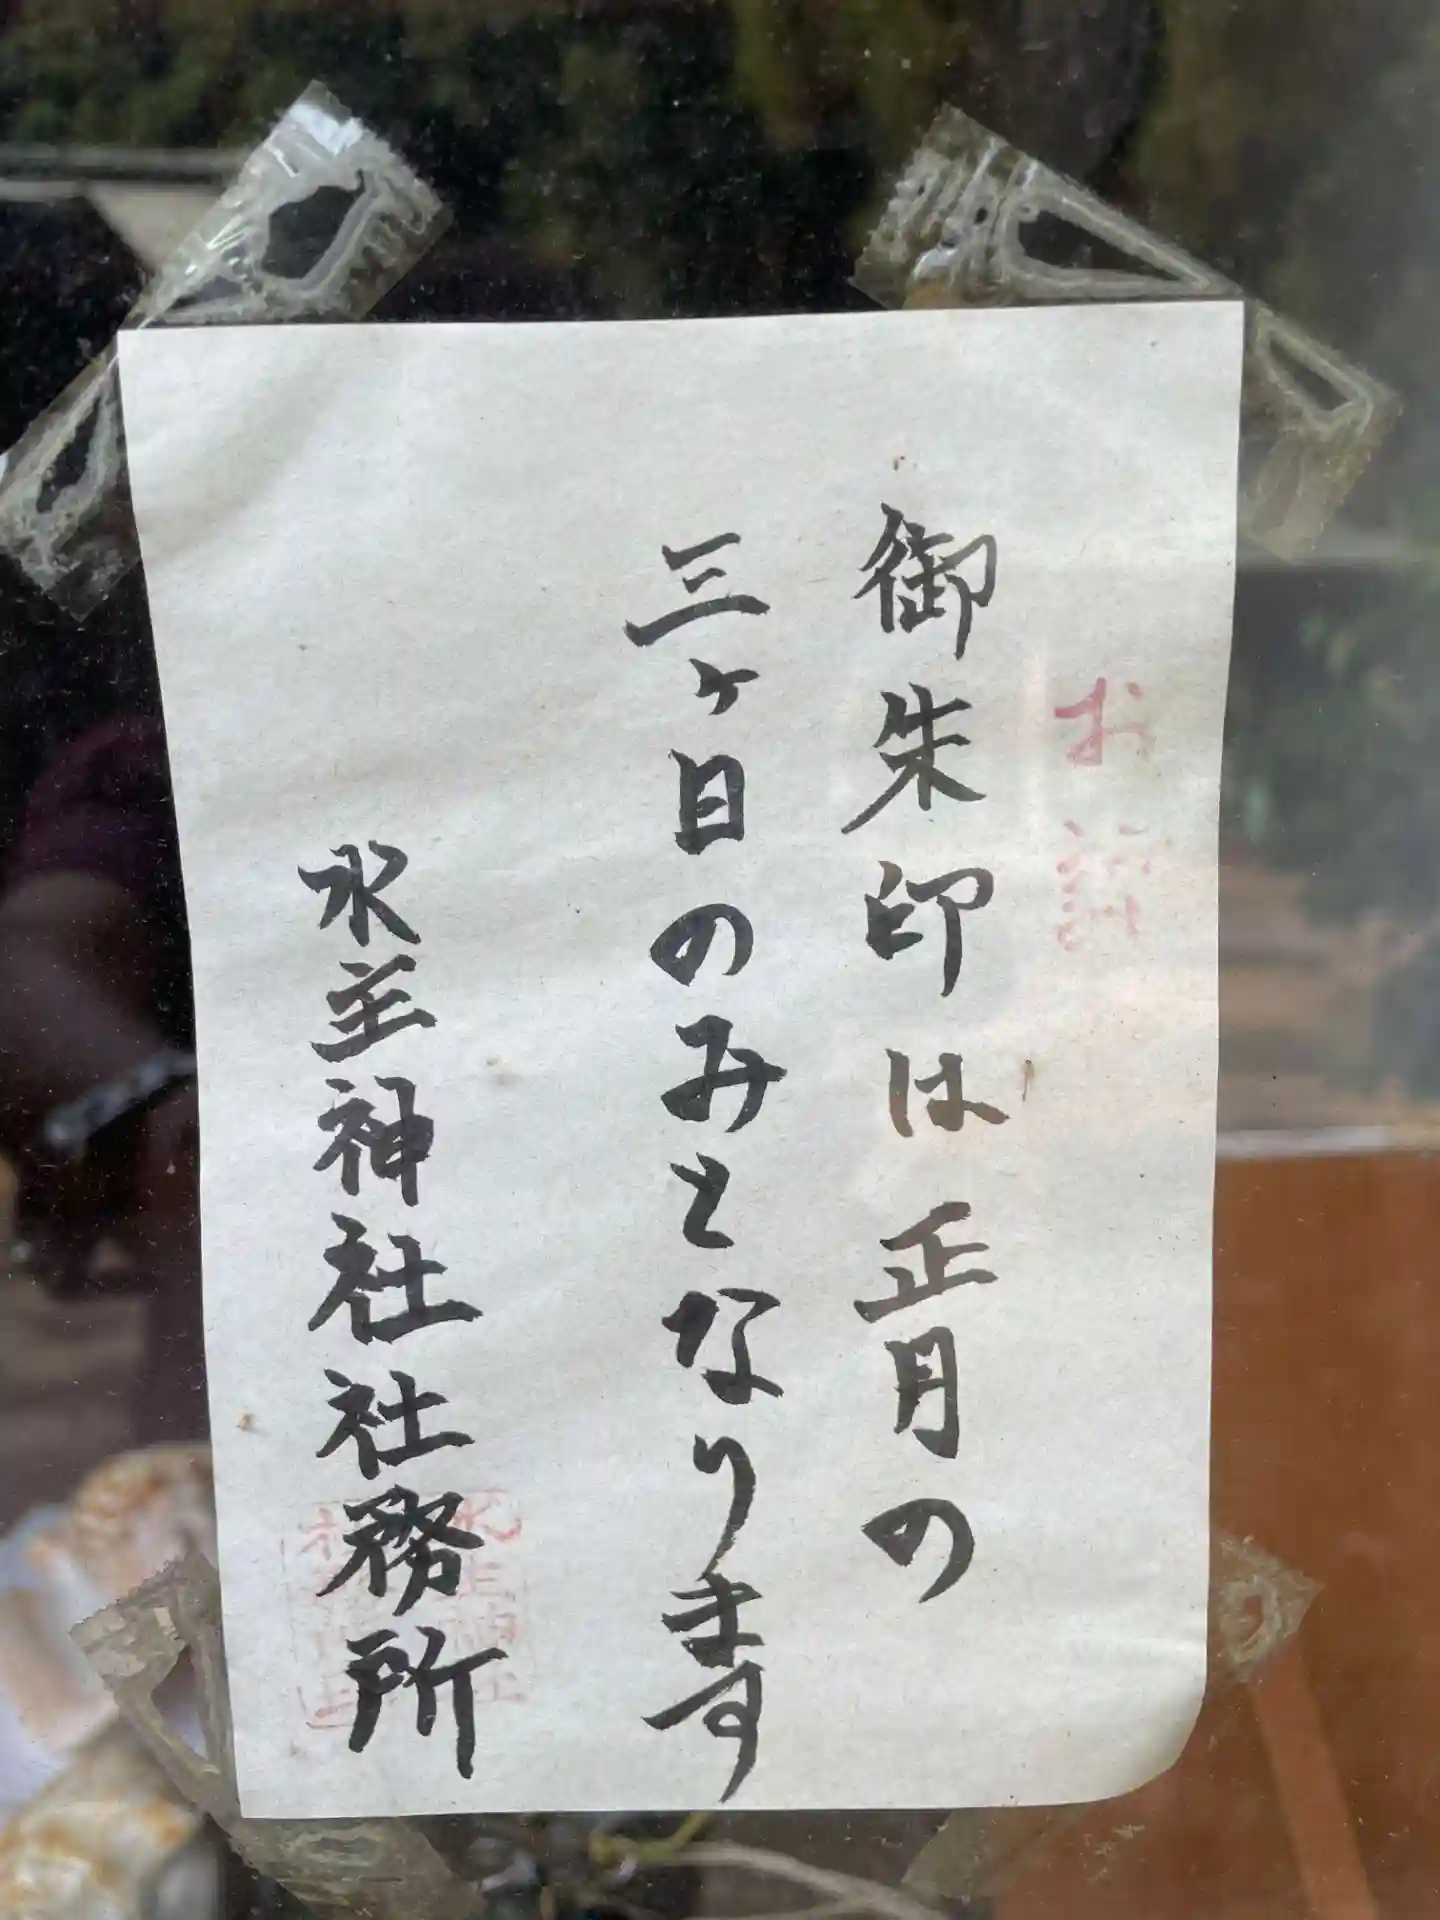 お詫
御朱印は正月の
三ヶ日のみとなります
水主神社社務所